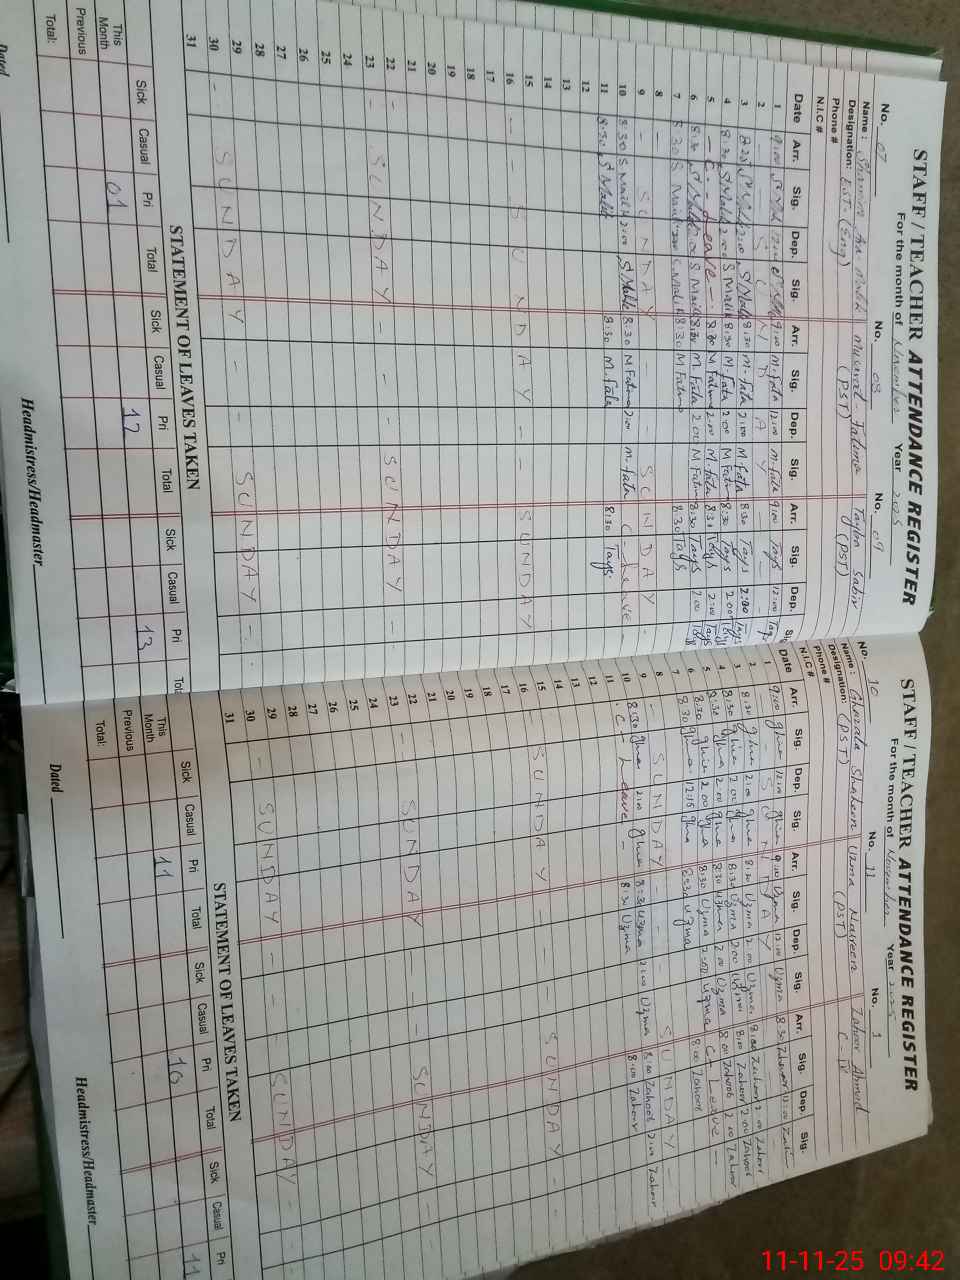 STAFF / TEACHER ATTENDANCE REGISTER
For the month of November Year 2025
No. 07 No. 08 No. 09
Name: Malik Musarrat Fatima Tayba Sabir
Designation: EST (Eng) (PST) (PST)
Phone #
N.I.C #
Date Arr. Sig. Dep. Sig. Arr. Sig. Dep. Sig. Arr. Sig. Dep.
1 9:00 12:00 9:00 M.Fata 12:00 M.Fata 9:00 Tays 12:00
2 - - S U N D A Y - -
3 2:00 S Malik 8:30 M.Fata 2:00 M.Fata 8:30 Tays 2:00 Tays
4 8:30 S Malik 2:00 S Malik 8:30 M.Fata 2:00 M Fatima 8:30 Tays 2:00
5 - C - Leave - 8:30 M Fatima 2:00 M.Fata 8:30 Tays 2:00 Tays
6 8:30 S Malik 2:00 S Malik 8:30 M.Fata 2:00 M Fatima 8:30 Tays 2:00 Tays
7 8:30 S Malik S Malik 8:30 M Fatima 8:30 Tays
8
9 - - S U N D A Y - - - S U N D A Y -
10 8:30 S Malik 2:00 S Malik 8:30 M Fatima 2:00 M.Fata C - Leave -
11 8:30 S Malik 8:30 M.Fata 8:30 Tays
12
13
14
15
16 - - S U N D A Y - - S U N D A Y
17
18
19
20
21
22
23 - - S U N D A Y - - - S U N D A Y - -
24
25
26
27
28
29
30 - - S U N D A Y - - - S U N D A Y -
31
STATEMENT OF LEAVES TAKEN
Sick Casual Pri Total Sick Casual Pri Total Sick Casual Pri
This Month 01 12 13
Previous
Total:
Dated Headmistress/Headmaster
STAFF / TEACHER ATTENDANCE REGISTER
For the month of November Year 2025
No. 10 No. 11 No. 1
Name: Ghazala Shaheen Uzma Naureen Zahoor Ahmed
Designation: (PST) (PST) C-IV
Phone #
N.I.C #
Date Arr. Sig. Dep. Sig. Arr. Sig. Dep. Sig. Arr. Sig. Dep. Sig.
1 9:00 12:00 9:00 Uzma 12:00 Uzma 8:30 Zahoor 12:00
2 - - S U N D A Y
3 8:30 2:00 8:30 Uzma 2:00 Uzma 8:00 Zahoor 2:00 Zahoor
4 8:30 2:00 8:30 Uzma 2:00 8:00 Zahoor 2:00 Zahoor
5 8:30 2:00 8:30 Uzma 2:00 Uzma 8:00 Zahoor 2:00 Zahoor
6 8:30 2:00 8:30 Uzma 2:00 Uzma C - Leave -
7 8:30 12:15 8:30 Uzma 8:00 Zahoor
8
9 - - S U N D A Y - - - S U N D A Y -
10 8:30 2:00 8:30 Uzma 2:00 Uzma 8:00 Zahoor 2:00 Zahoor
11 C. Leave - 8:30 Uzma 8:00 Zahoor
12
13
14
15
16 - - S U N D A Y - - - S U N D A Y -
17
18
19
20
21
22
23 - - S U N D A Y - - - S U N D A Y -
24
25
26
27
28
29
30 - - S U N D A Y - - - S U N D A Y -
31
STATEMENT OF LEAVES TAKEN
Sick Casual Pri Total Sick Casual Pri Total Sick Casual Pri
This Month 11 16 11
Previous
Total:
Dated Headmistress/Headmaster
11-11-25 09:42